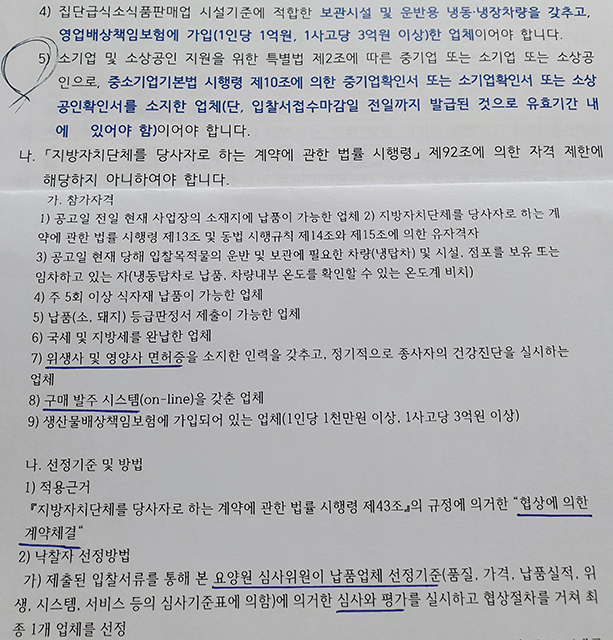 4) 집단급식소식품판매업 시설기준에 적합한 보관시설 및 운반용 냉동·냉장차량을 갖추고,
영업배상책임보험에 가입(1인당 1억원, 1사고당 3억원 이상)한 업체이어야 합니다.
5) 소기업 및 소상공인 지원을 위한 특별법 제2조에 따른 중기업 또는 소기업 또는 소상공
인으로, 중소기업기본법 시행령 제10조에 의한 중기업확인서 또는 소기업확인서 또는 소상
공인확인서를 소지한 업체(단, 입찰서접수마감일 전일까지 발급된 것으로 유효기간 내
에 있어야 함)이어야 합니다.
나. 「지방자치단체를 당사자로 하는 계약에 관한 법률 시행령」 제92조에 의한 자격 제한에
해당하지 아니하여야 합니다.
가. 참가자격
1) 공고일 전일 현재 사업장의 소재지에 납품이 가능한 업체 2) 지방자치단체를 당사자로 하는 계
약에 관한 법률 시행령 제13조 및 동법 시행규칙 제14조와 제15조에 의한 유자격자
3) 공고일 현재 당해 입찰목적물의 운반 및 보관에 필요한 차량(냉탑차) 및 시설, 점포를 보유 또는
임차하고 있는 자(냉동탑차로 납품, 차량내부 온도를 확인할 수 있는 온도계 비치)
4) 주 5회 이상 식자재 납품이 가능한 업체
5) 납품(소, 돼지) 등급판정서 제출이 가능한 업체
6) 국세 및 지방세를 완납한 업체
7) 위생사 및 영양사 면허증을 소지한 인력을 갖추고, 정기적으로 종사자의 건강진단을 실시하는
업체
8) 구매 발주 시스템(on-line)을 갖춘 업체
9) 생산물배상책임보험에 가입되어 있는 업체(1인당 1천만원 이상, 1사고당 3억원 이상)
나. 선정기준 및 방법
1) 적용근거
『지방자치단체를 당사자로 하는 계약에 관한 법률 시행령 제43조』의 규정에 의거한 “협상에 의한
계약체결“
2) 낙찰자 선정방법
가) 제출된 입찰서류를 통해 본 요양원 심사위원이 납품업체 선정기준(품질, 가격, 납품실적, 위
생, 시스템, 서비스 등의 심사기준표에 의함)에 의거한 심사와 평가를 실시하고 협상절차를 거쳐 최
종 1개 업체를 선정